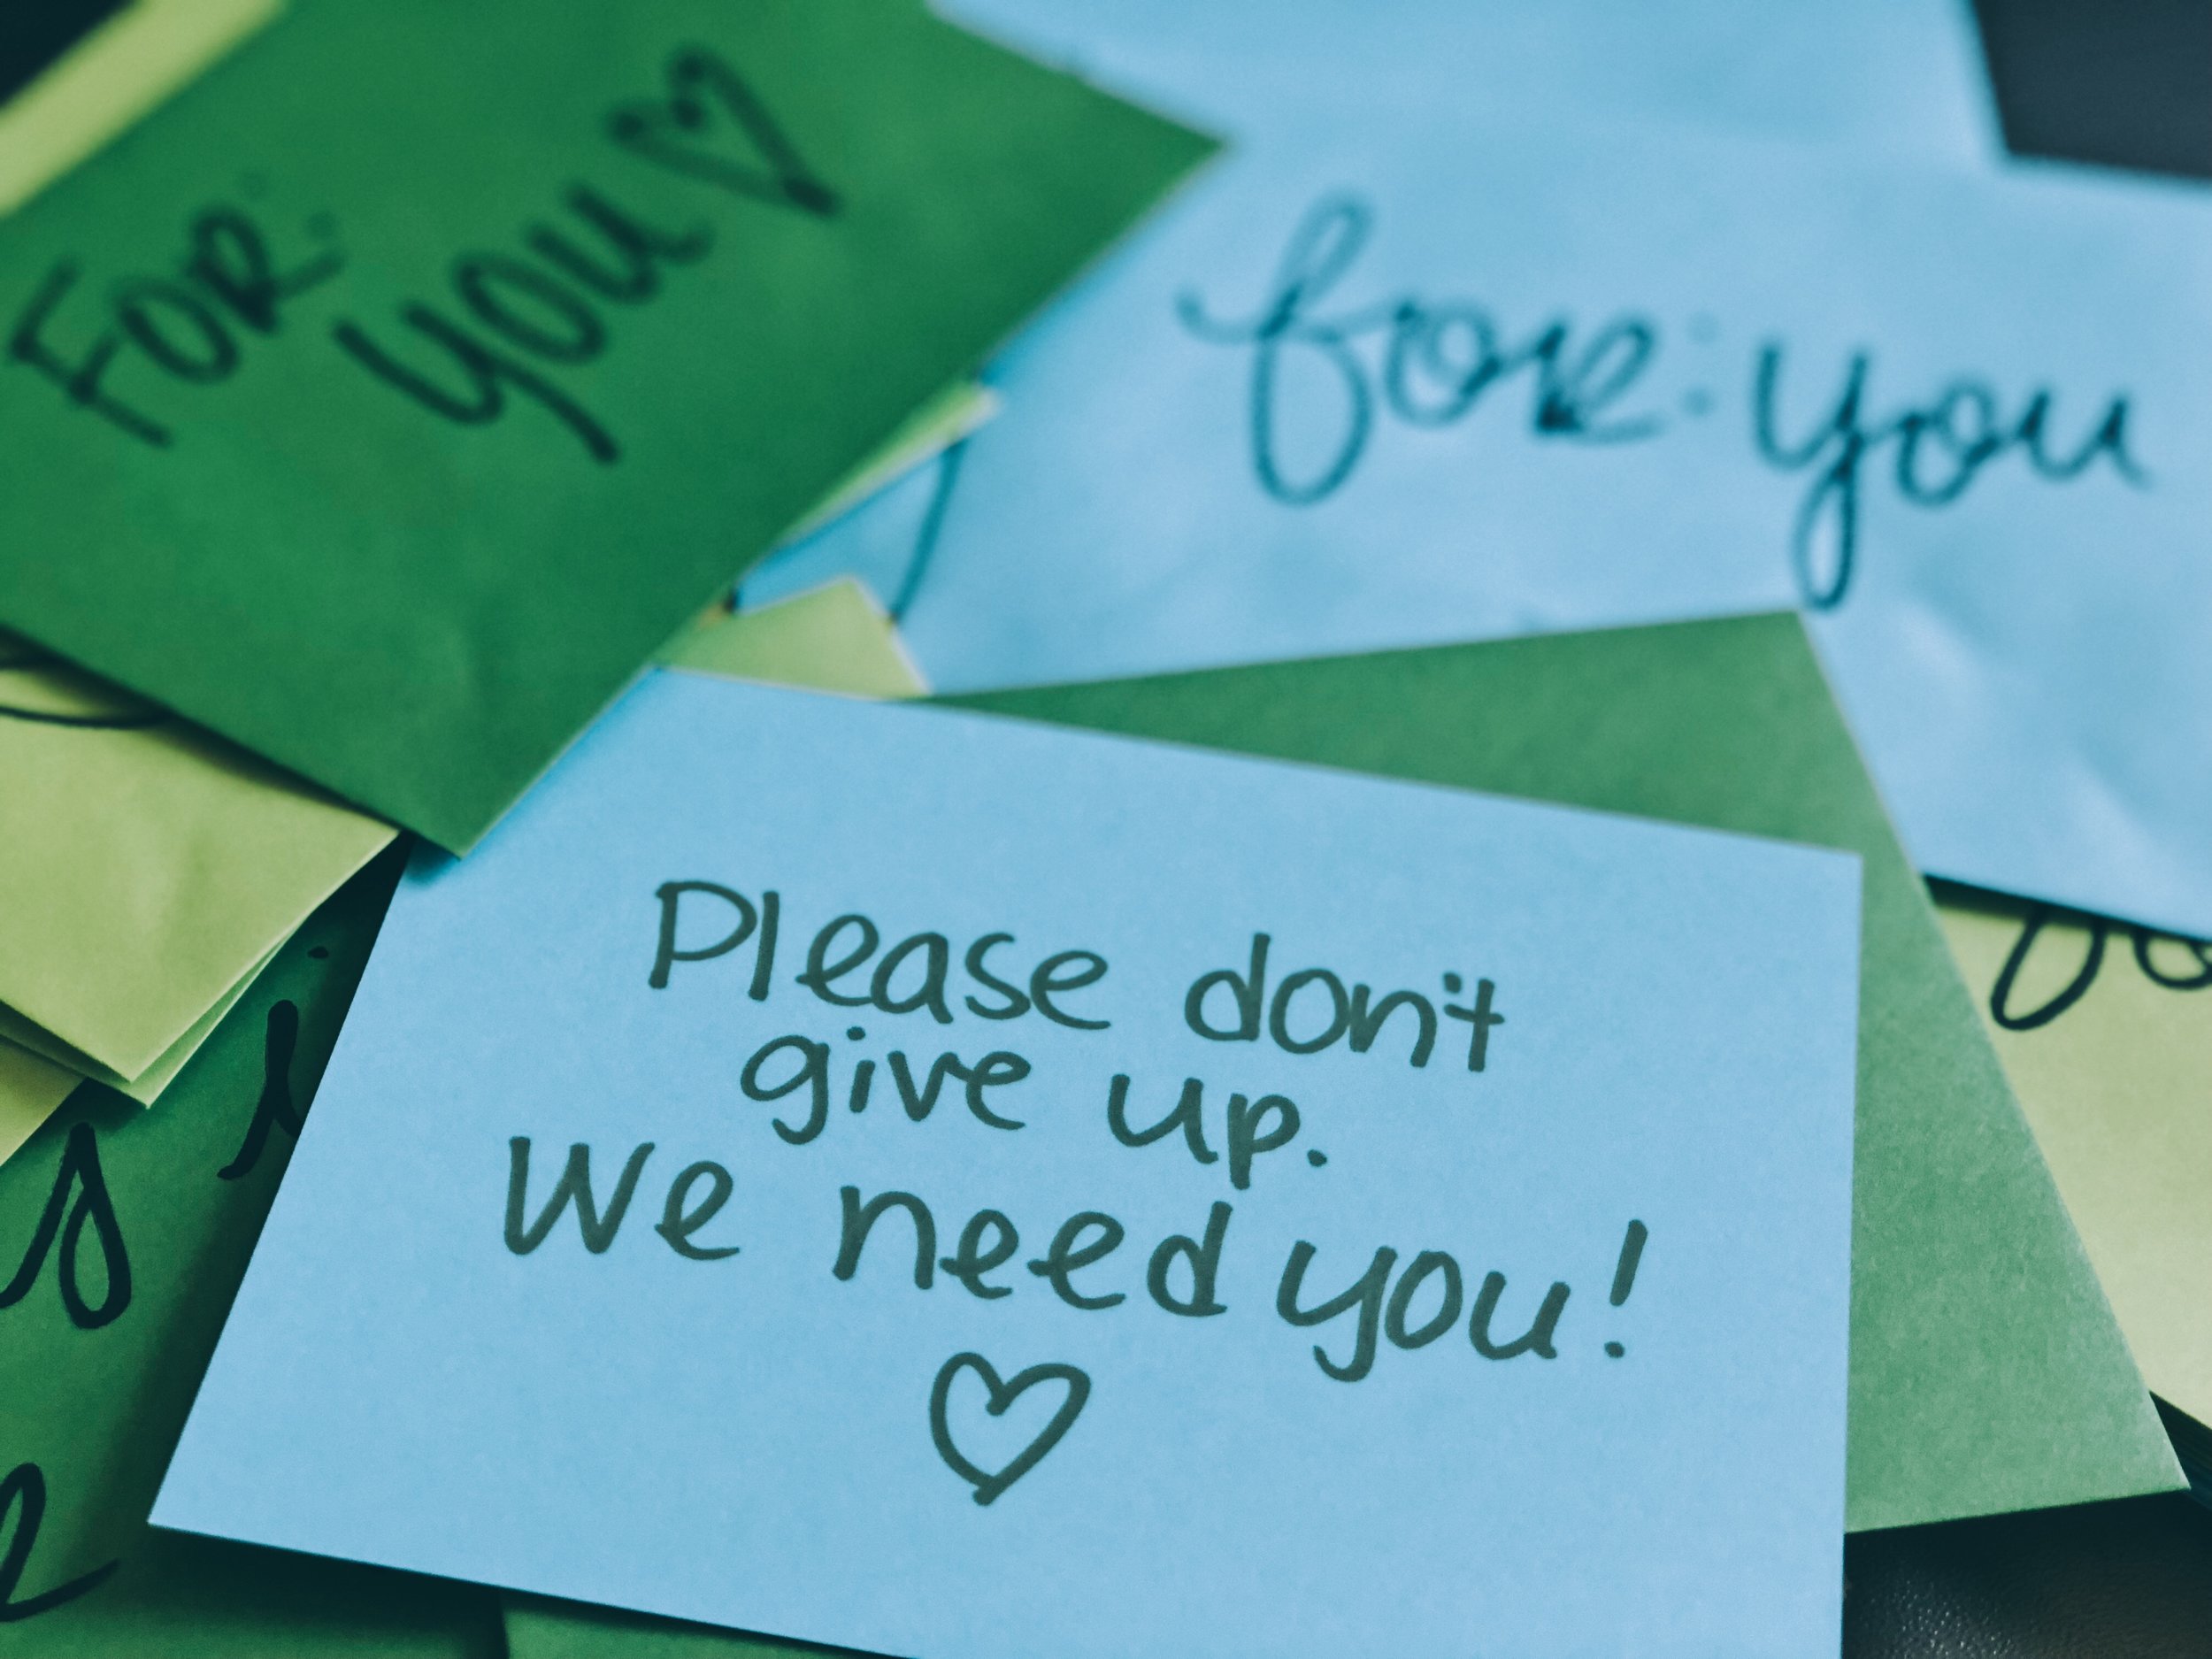 FOR:
you
for: you
Please don't
give up.
We need you!